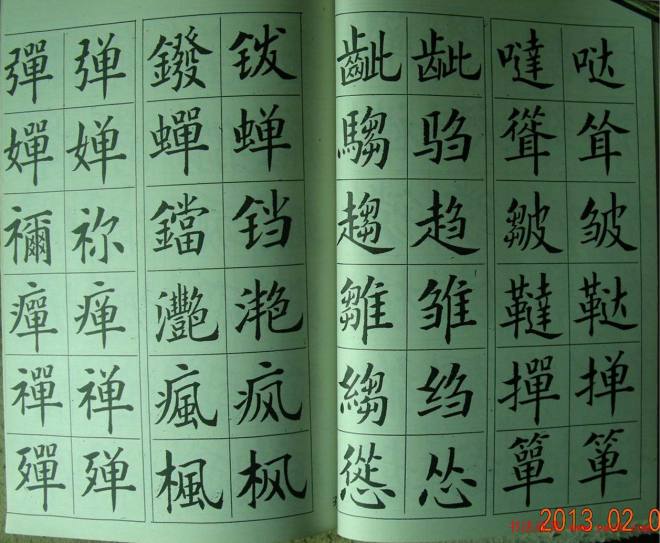 彈 弹 鏺 䥽 齜 龇 噠 哒
嬋 婵 蟬 蝉 騶 驺 聳 耸
禰 祢 鐺 铛 趨 趋 皺 皱
癉 瘅 灧 滟 雛 雏 韃 鞑
禪 禅 瘋 疯 縐 绉 撣 掸
殫 殚 楓 枫 慫 怂 簞 箪
2013.02.0